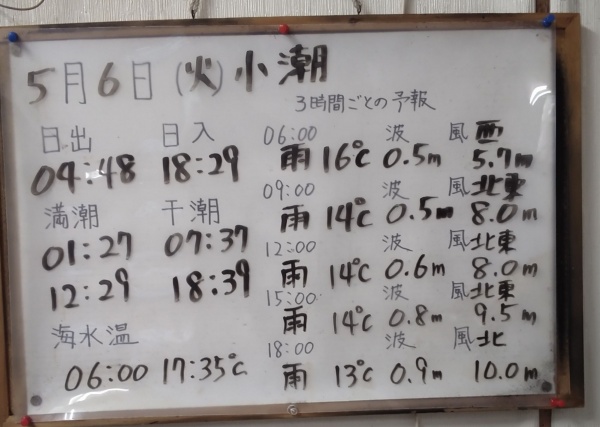 5月6日(火)小潮
3時間ごとの予報
日出 日入
04:48 18:29
満潮 干潮
01:27 07:37
12:29 18:39
海水温
06:00 17:35℃
06:00 波 風 西
雨 16℃ 0.5m 5.7m
09:00 波 風 北東
雨 14℃ 0.5m 8.0m
12:00 波 風 北東
雨 14℃ 0.6m 8.0m
15:00 波 風 北東
雨 14℃ 0.8m 9.5m
18:00 波 風 北
雨 13℃ 0.9m 10.0m